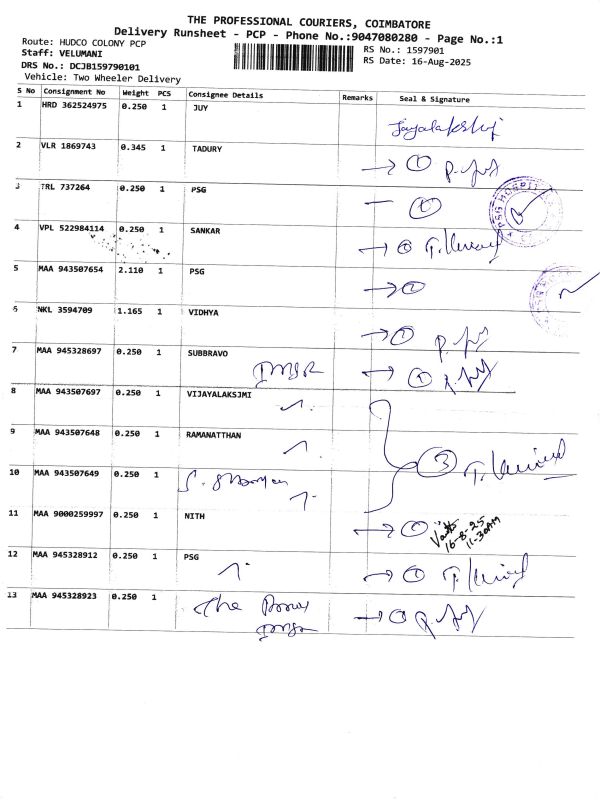 THE PROFESSIONAL COURIERS, COIMBATORE
Delivery Runsheet - PCP - Phone No.:9047080280 - Page No.:1
Route: HUDCO COLONY PCP
RS No.: 1597901
Staff: VELUMANI
RS Date: 16-Aug-2025
DRS No.: DCJB159790101
Vehicle: Two Wheeler Delivery
S No Consignment No Weight PCS Consignee Details Remarks Seal & Signature
1 HRD 362524975 0.250 1 JUY
2 VLR 1869743 0.345 1 TADURY
→ 1
3 TRL 737264 0.250 1 PSG
PSG HOSPIT
4 VPL 522984114 0.250 1 SANKAR
5 MAA 943507654 2.110 1 PSG
6 NKL 3594709 1.165 1 VIDHYA
→ 1
7 MAA 945328697 0.250 1 SUBBRAVO
→ 1
8 MAA 943507697 0.250 1 VIJAYALAKSJMI
9 MAA 943507648 0.250 1 RAMANATTHAN
3
10 MAA 943507649 0.250 1
11 MAA 9000259997 0.250 1 NITH
→ 1
16-8-25
11-30AM
12 MAA 945328912 0.250 1 PSG
→ 1
13 MAA 945328923 0.250 1 The
→ 1